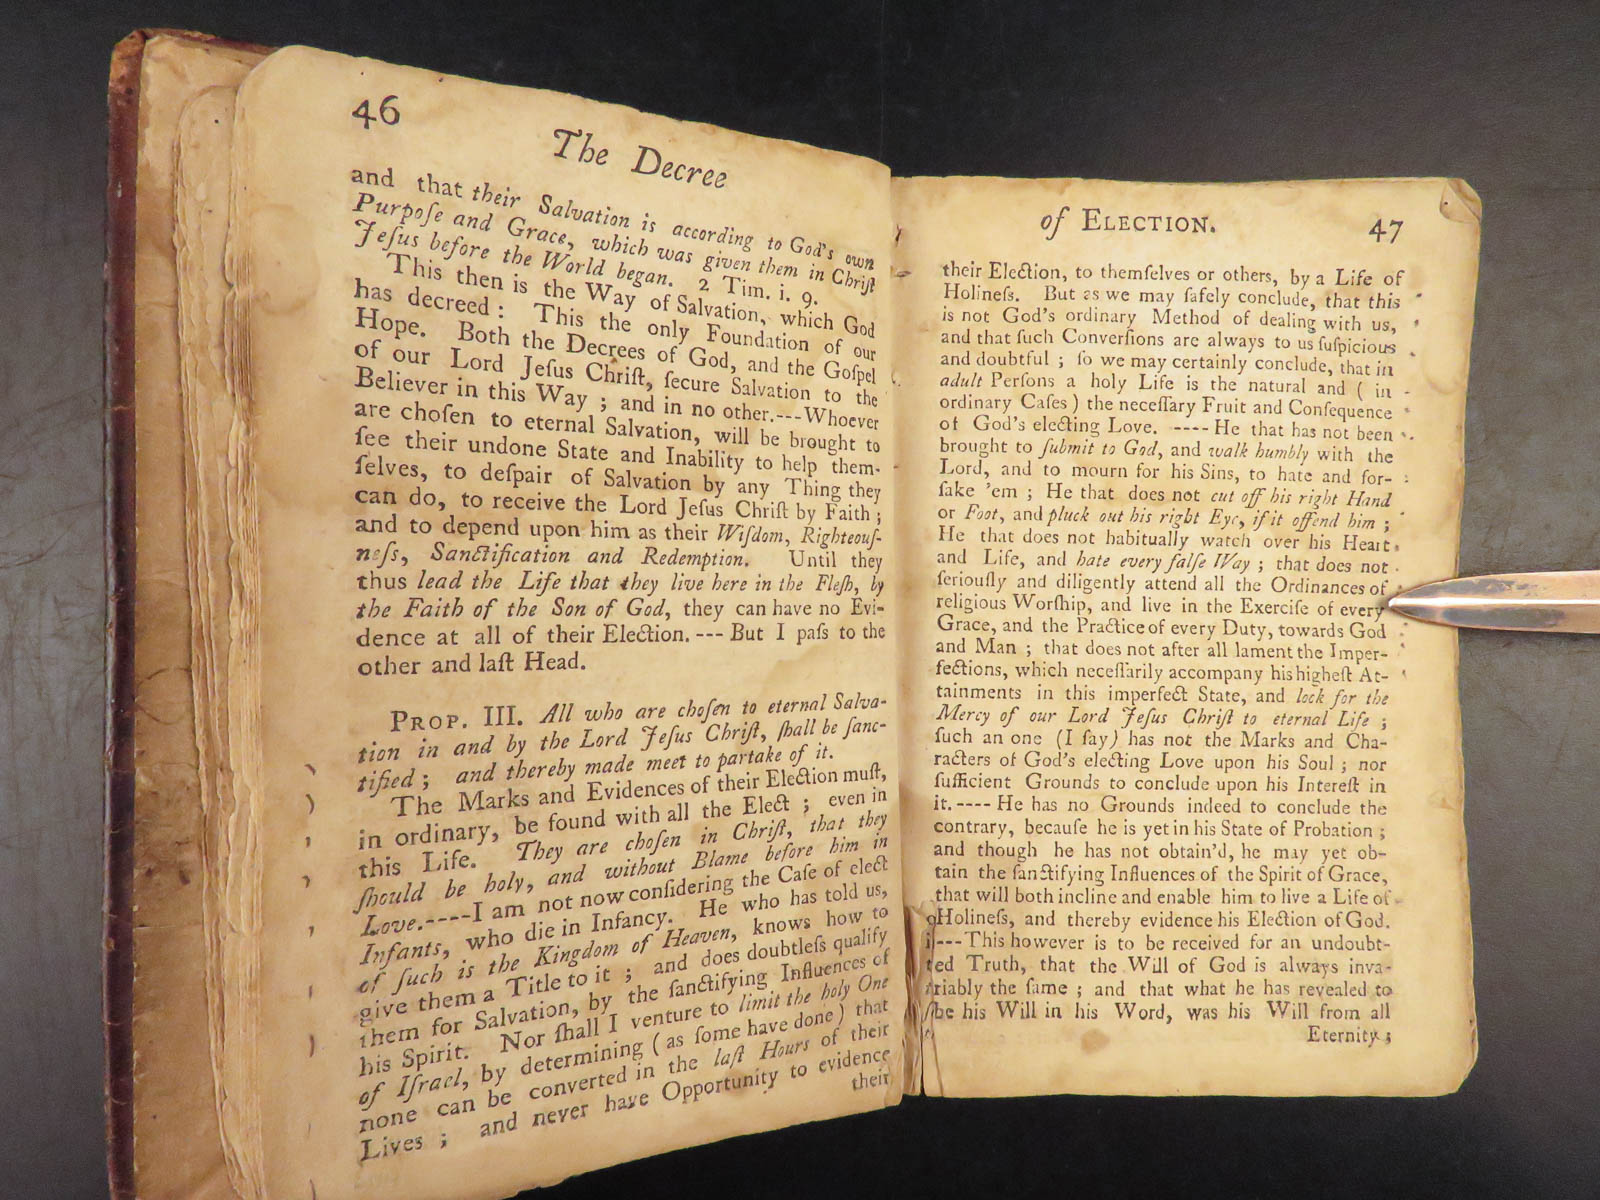 46
The Decree
and that their Salvation is according to God's own
Purpoſe and Grace, which was given them in Chriſt
Jeſus before the World began. 2 Tim. i. 9.
This then is the Way of Salvation, which God
has decreed: This the only Foundation of our
Hope. Both the Decrees of God, and the Goſpel
of our Lord Jeſus Chriſt, ſecure Salvation to the
Believer in this Way; and in no other.---Whoever
are choſen to eternal Salvation, will be brought to
ſee their undone State and Inability to help them-
ſelves, to deſpair of Salvation by any Thing they
can do, to receive the Lord Jeſus Chriſt by Faith;
and to depend upon him as their Wiſdom, Righteouſ-
neſs, Sanctification and Redemption. Until they
thus lead the Life that they live here in the Fleſh, by
the Faith of the Son of God, they can have no Evi-
dence at all of their Election. --- But I paſs to the
other and laſt Head.
PROP. III. All who are choſen to eternal Salva-
tion in and by the Lord Jeſus Chriſt, ſhall be ſanc-
tified; and thereby made meet to partake of it.
The Marks and Evidences of their Election muſt,
in ordinary, be found with all the Elect; even in
this Life. They are choſen in Chriſt, that they
ſhould be holy, and without Blame before him in
Love.----I am not now conſidering the Caſe of elect
Infants, who die in Infancy. He who has told us,
of ſuch is the Kingdom of Heaven, knows how to
give them a Title to it; and does doubtleſs qualify
them for Salvation, by the ſanctifying Influences of
his Spirit. Nor ſhall I venture to limit the holy One
of Iſrael, by determining (as ſome have done) that
none can be converted in the laſt Hours of their
Lives; and never have Opportunity to evidence
their
of ELECTION.
47
their Election, to themſelves or others, by a Life of
Holineſs. But as we may ſafely conclude, that this
is not God's ordinary Method of dealing with us,
and that ſuch Converſions are always to us ſuſpicious
and doubtful; ſo we may certainly conclude, that in
adult Perſons a holy Life is the natural and (in
ordinary Caſes) the neceſſary Fruit and Conſequence
of God's electing Love. ----He that has not been
brought to ſubmit to God, and walk humbly with the
Lord, and to mourn for his Sins, to hate and for-
ſake 'em; He that does not cut off his right Hand
or Foot, and pluck out his right Eye, if it offend him;
He that does not habitually watch over his Heart
and Life, and hate every falſe Way; that does not
ſeriouſly and diligently attend all the Ordinances of
religious Worſhip, and live in the Exerciſe of every
Grace, and the Practice of every Duty, towards God
and Man; that does not after all lament the Imper-
fections, which neceſſarily accompany his higheſt At-
tainments in this imperfect State, and look for the
Mercy of our Lord Jeſus Chriſt to eternal Life;
ſuch an one (I ſay) has not the Marks and Cha-
racters of God's electing Love upon his Soul; nor
ſufficient Grounds to conclude upon his Intereſt in
it.----He has no Grounds indeed to conclude the
contrary, becauſe he is yet in his State of Probation;
and though he has not obtain'd, he may yet ob-
tain the ſanctifying Influences of the Spirit of Grace,
that will both incline and enable him to live a Life of
Holineſs, and thereby evidence his Election of God.
---This however is to be received for an undoubt-
ed Truth, that the Will of God is always inva-
riably the ſame; and that what he has revealed to
be his Will in his Word, was his Will from all
Eternity;